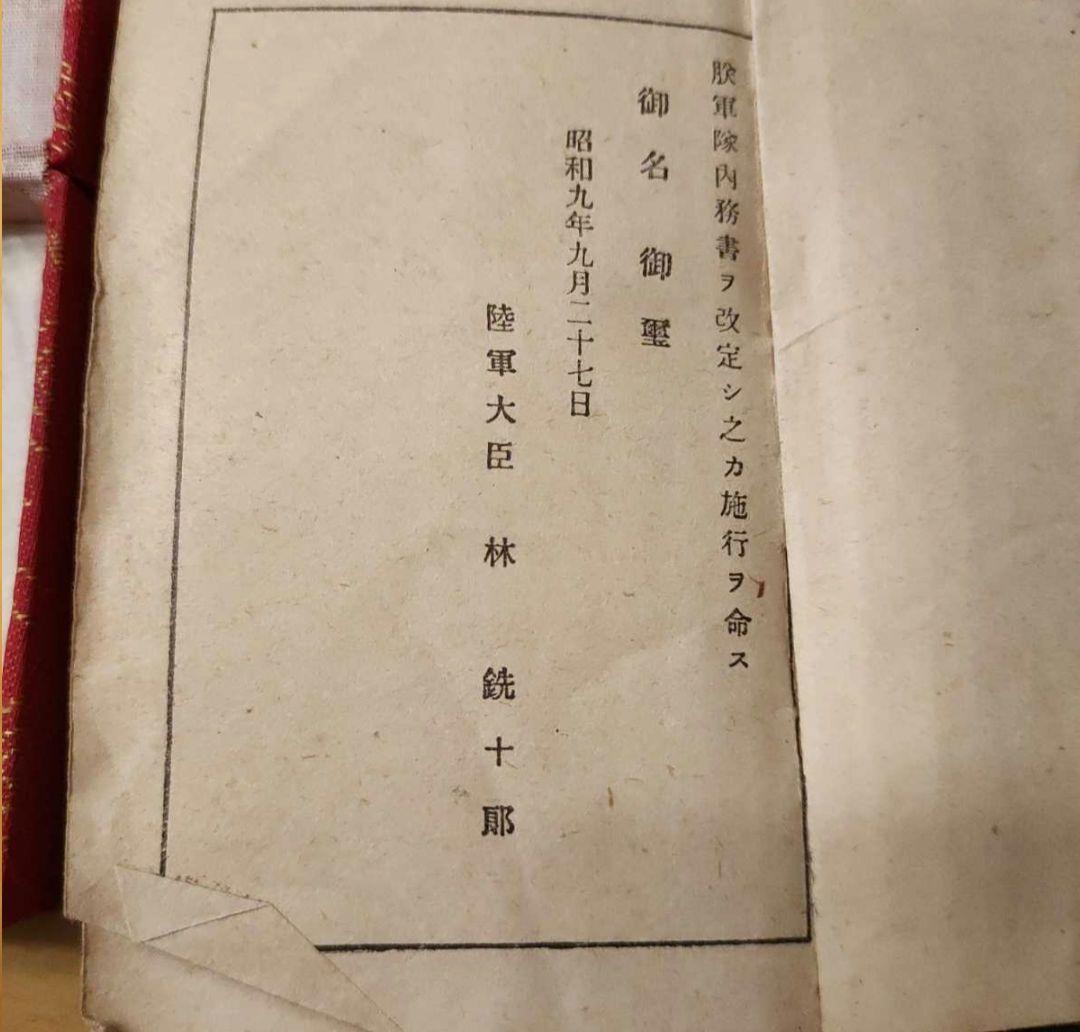 朕軍隊内務書ヲ改定シ之カ施行ヲ命ス
御名御璽
昭和九年九月二十七日
陸軍大臣 林 銑十郎